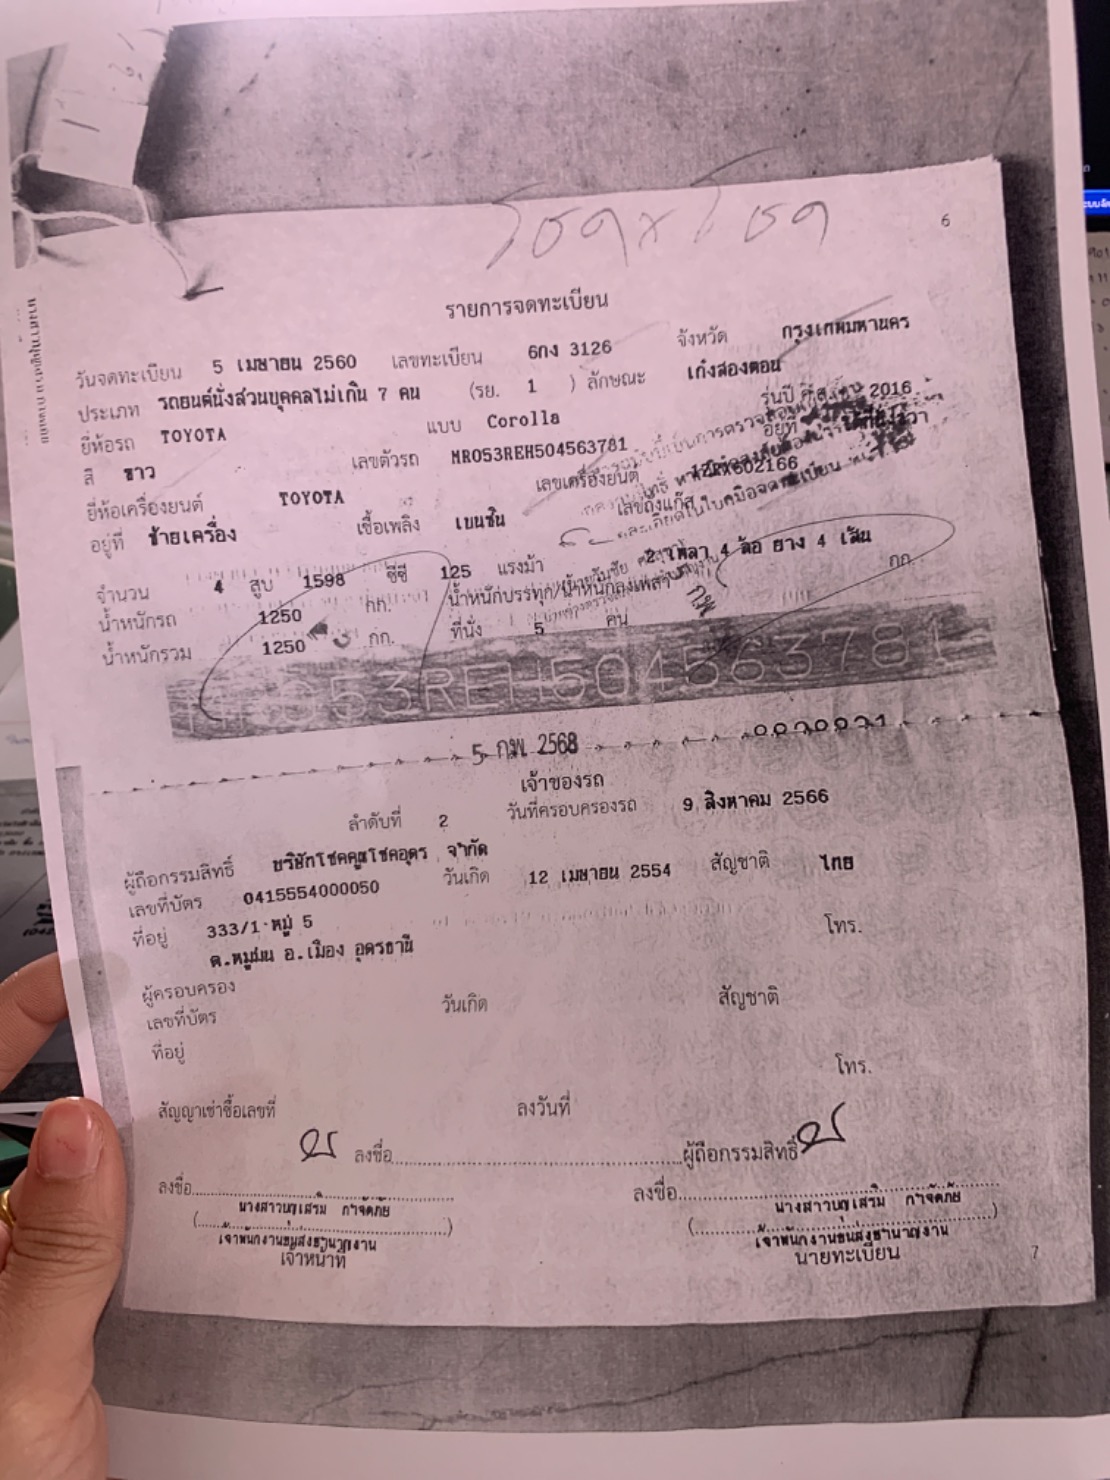 โชคxโชค
6
รายการจดทะเบียน
วันจดทะเบียน 5 เมษายน 2560 เลขทะเบียน 6กง 3126 จังหวัด กรุงเทพมหานคร
ประเภท รถยนต์นั่งส่วนบุคคลไม่เกิน 7 คน (รย. 1 ) ลักษณะ เก๋งสองตอน
ยี่ห้อรถ TOYOTA แบบ Corolla รุ่นปี ค.ศ. 2016
สี ขาว เลขตัวรถ MR053REH504563781 อยู่ที่
ยี่ห้อเครื่องยนต์ TOYOTA เลขเครื่องยนต์
อยู่ที่ ซ้ายเครื่อง เชื้อเพลิง เบนซิน เลขถังแก๊ส
จำนวน 4 สูบ 1598 ซีซี 125 แรงม้า 2 เพลา 4 ล้อ ยาง 4 เส้น
น้ำหนักรถ 1250 กก. น้ำหนักบรรทุก/น้ำหนักลงเพลา กก.
น้ำหนักรวม 1250 กก. ที่นั่ง 5 คน
MR053REH504563781
5 กพ 2568
เจ้าของรถ
ลำดับที่ 2 วันที่ครอบครองรถ 9 สิงหาคม 2566
ผู้ถือกรรมสิทธิ์ บริษัทโชคคูณโชคอุดร จำกัด
เลขที่บัตร 0415554000050 วันเกิด 12 เมษายน 2554 สัญชาติ ไทย
ที่อยู่ 333/1 หมู่ 5 โทร.
ต.หมูม่น อ.เมือง อุดรธานี
ผู้ครอบครอง
เลขที่บัตร วันเกิด สัญชาติ
ที่อยู่
โทร.
สัญญาเช่าซื้อเลขที่ ลงวันที่
ลงชื่อ ผู้ถือกรรมสิทธิ์
ลงชื่อ ลงชื่อ
นางสาวบุญเสริม กำจัดภัย นางสาวบุญเสริม กำจัดภัย
เจ้าพนักงานขนส่งชำนาญงาน เจ้าพนักงานขนส่งชำนาญงาน
เจ้าหน้าที่ นายทะเบียน
7